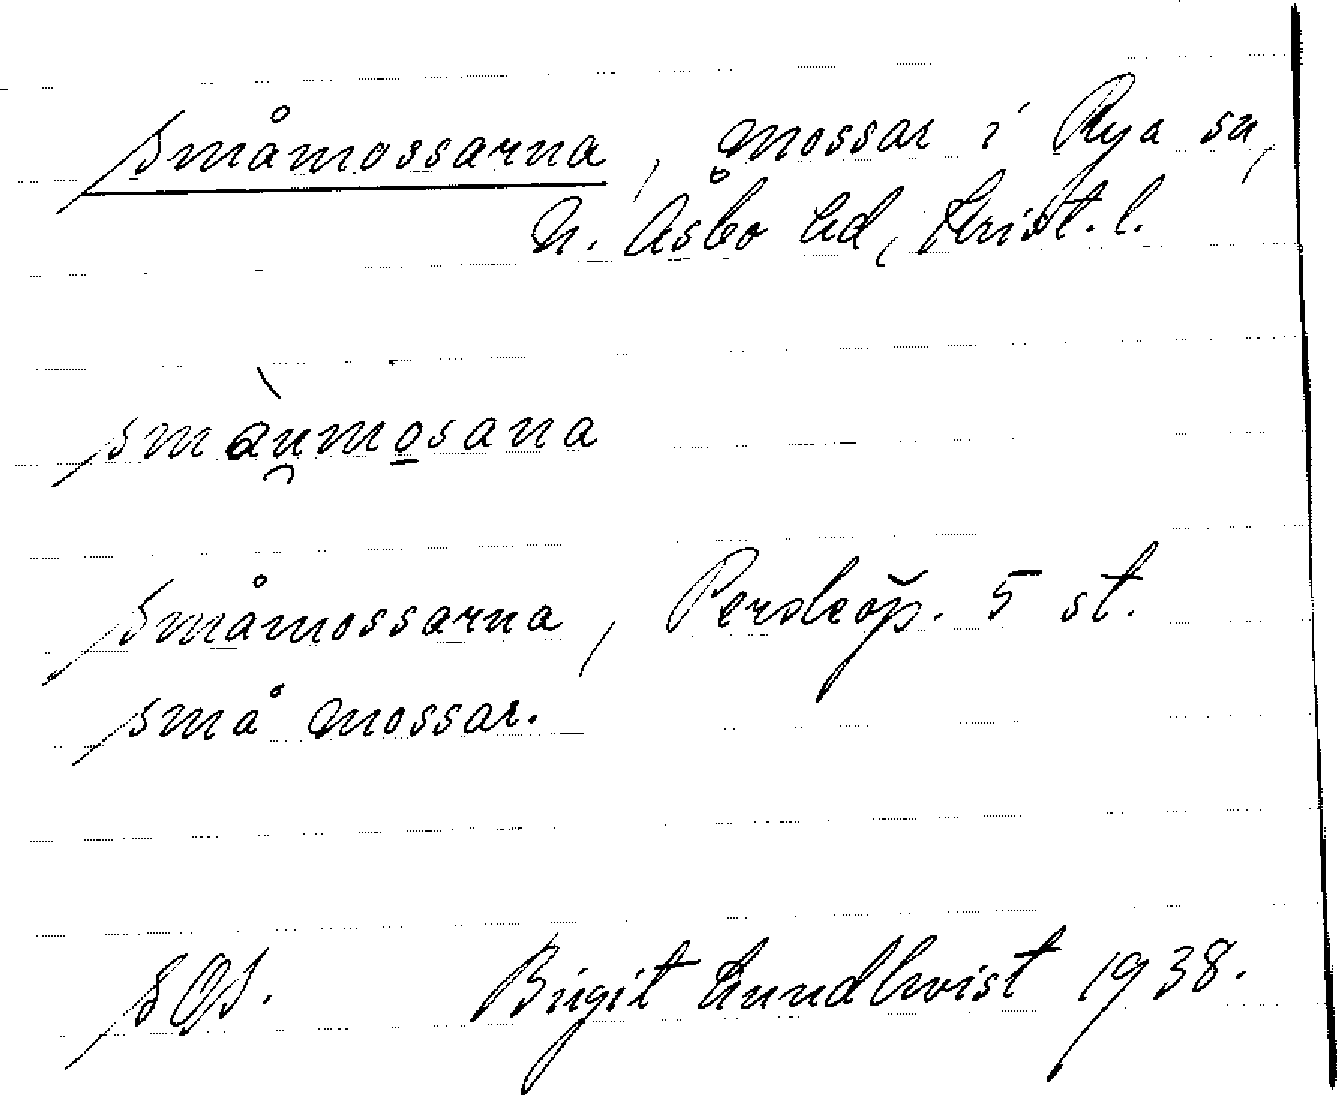 Småmossarna, mossar i Rya sn,
N. Åsbo hd, Krist. l.
smàu̯mo̲sana
Småmossarna, Persköp. 5 st.
små mossar.
Birgit Lundkvist 1938.